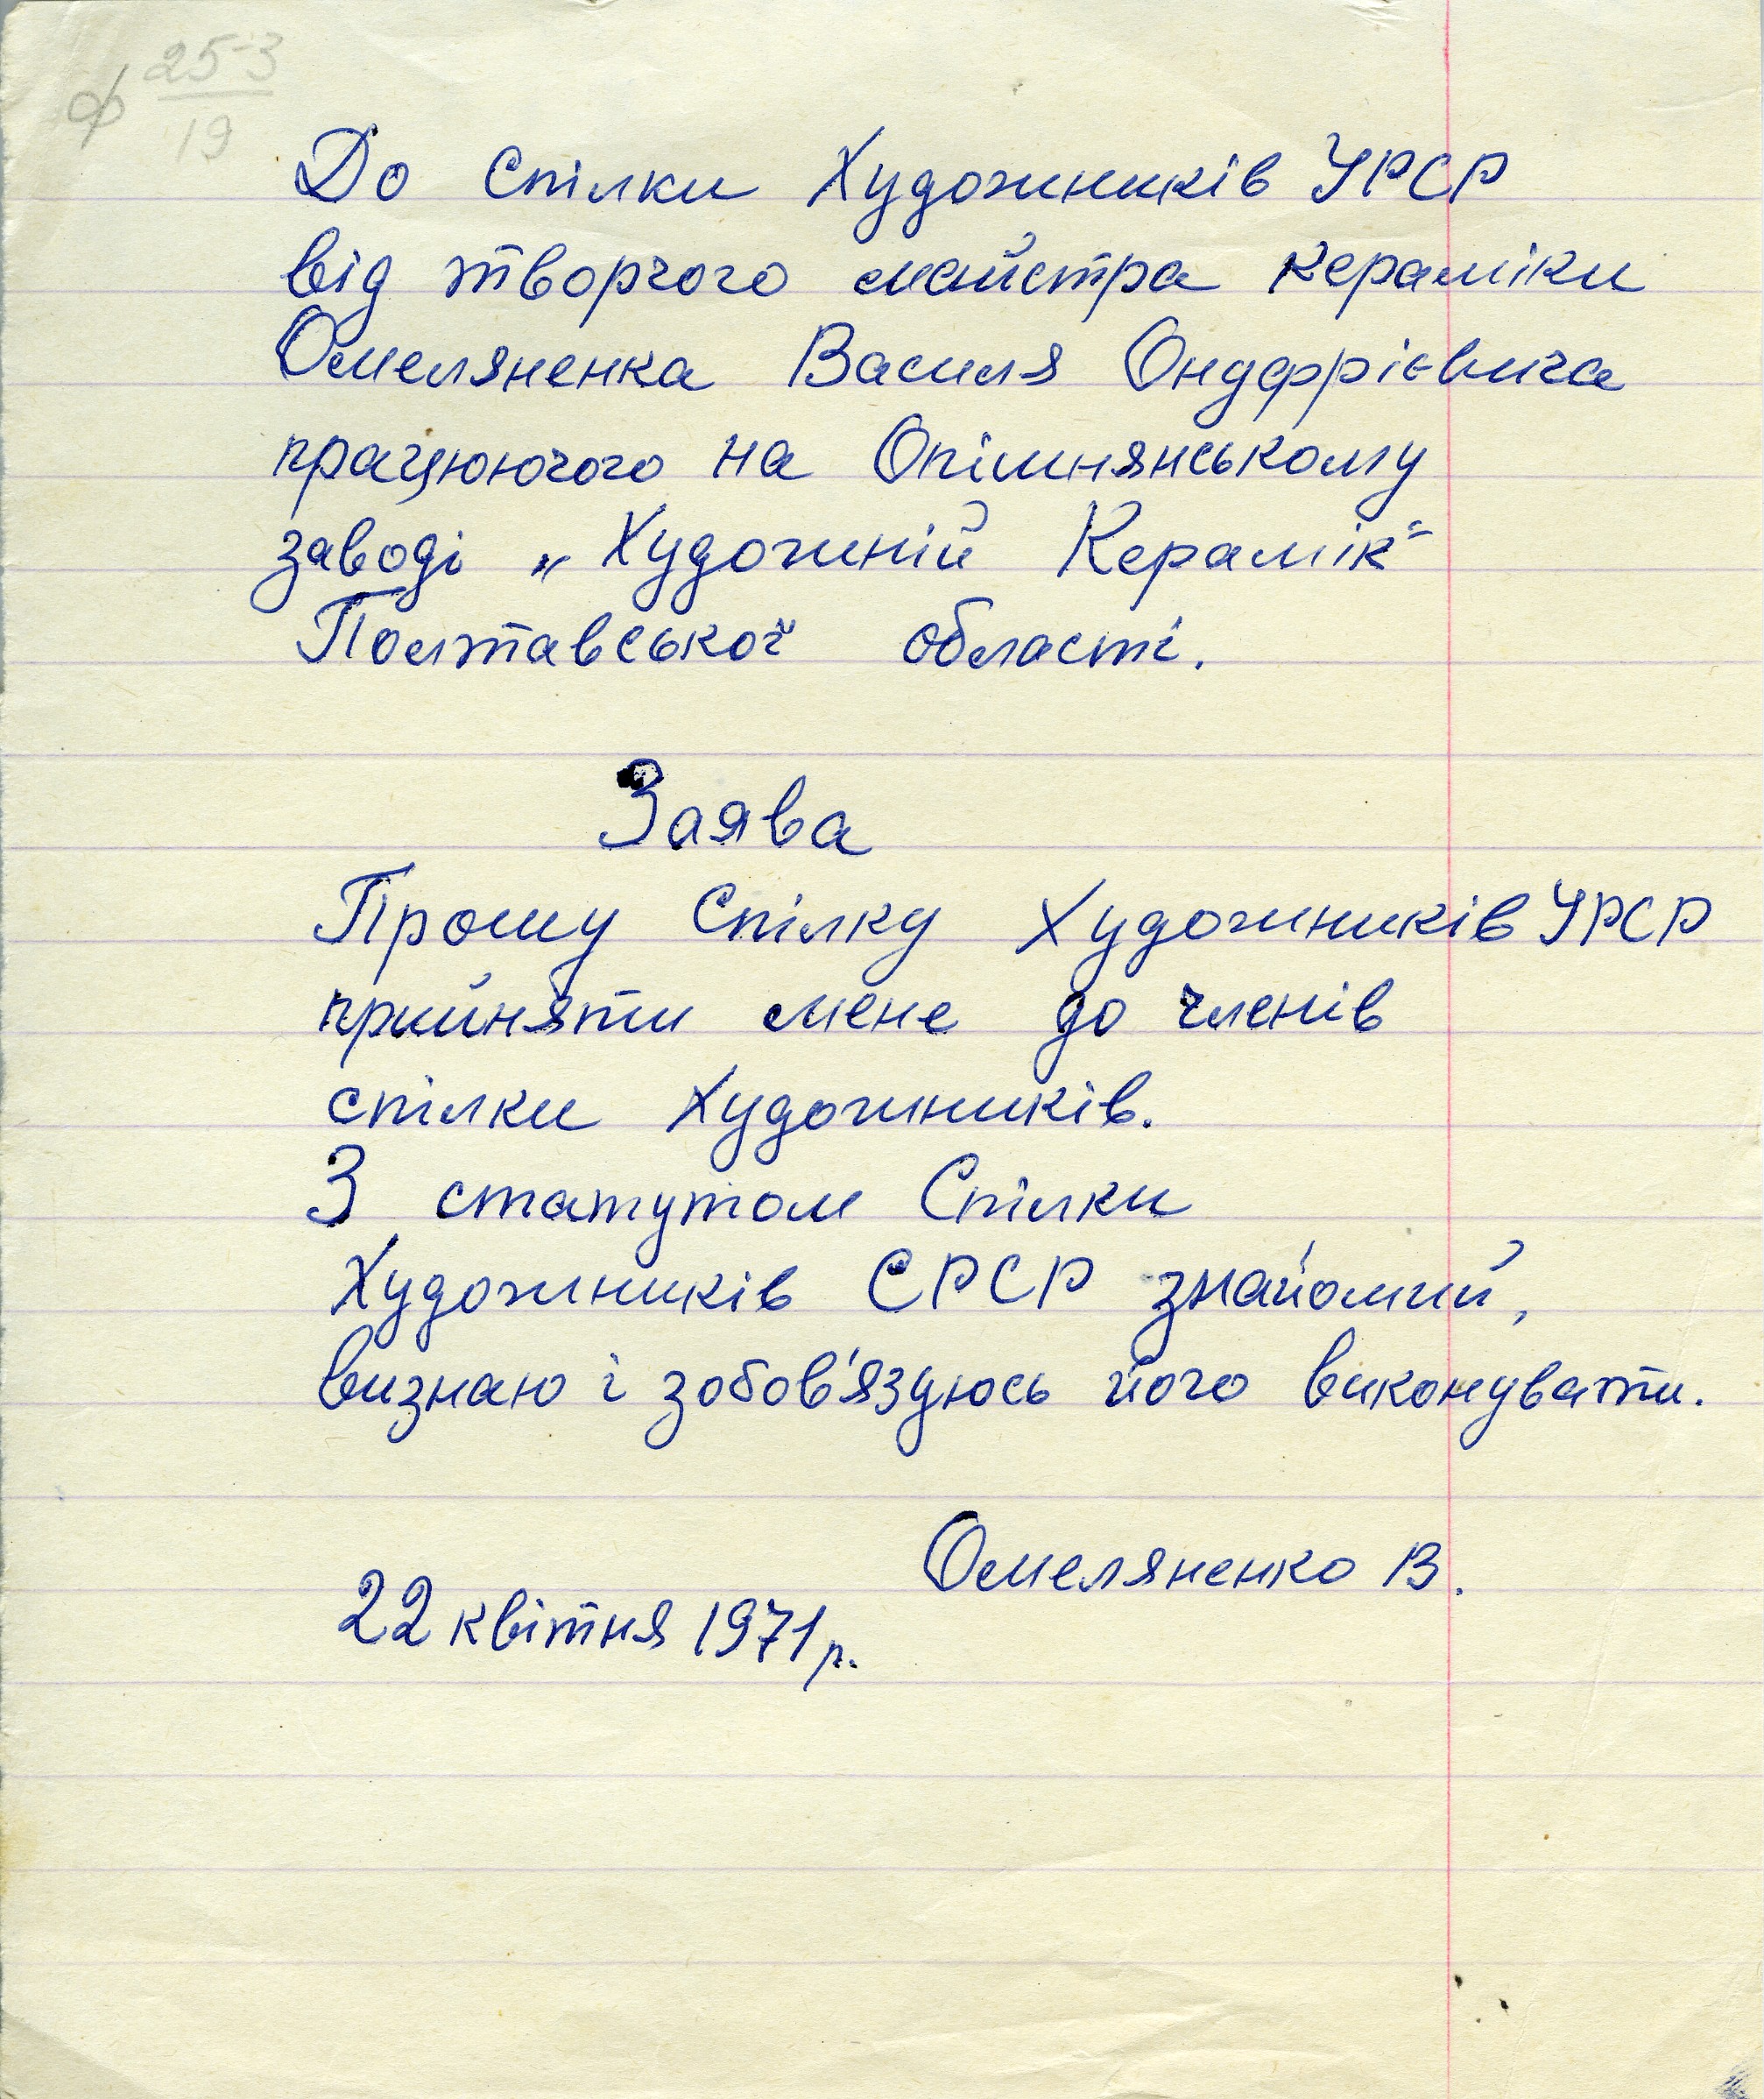 ф 25-3
19
До Спілки Художників УРСР
від творчого майстра кераміки
Омеляненка Василя Ондфрієвича
працюючого на Опішнянському
заводі „Художній Керамік“
Полтавської області.
Заява
Прошу Спілку Художників УРСР
прийняти мене до членів
спілки Художників.
З статутом Спілки
Художників СРСР знайомий,
визнаю і зобов'язуюсь його виконувати.
Омеляненко В.
22 квітня 1971 р.